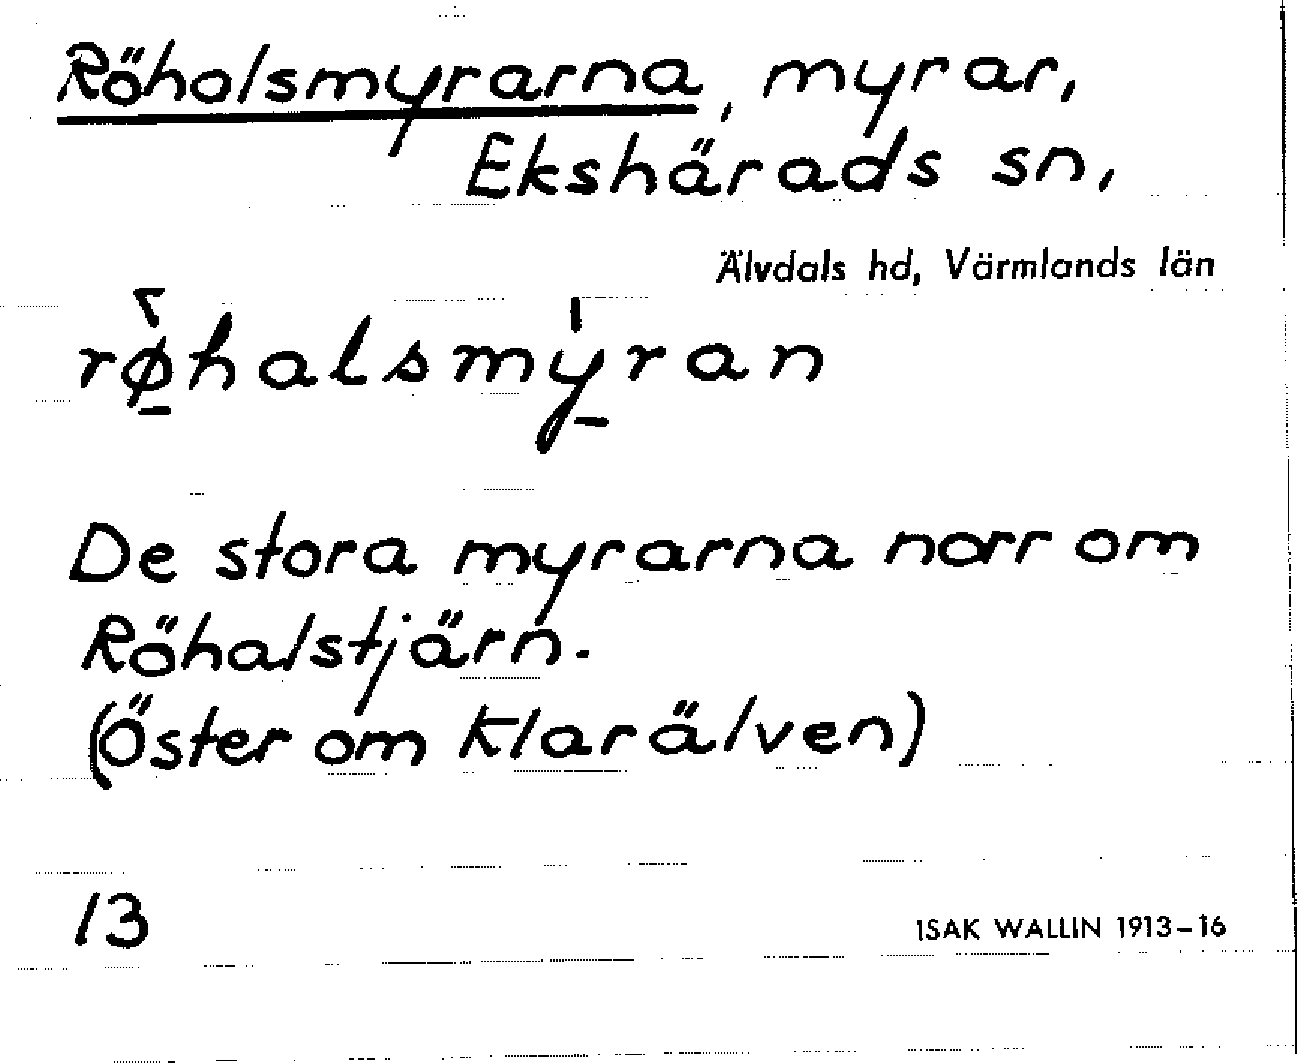 Röhalsmyrarna, myrar,
Ekshärads sn,
Älvdals hd, Värmlands län
rø̠̀halsmý̠ran
De stora myrarna norr om
Röhalstjärn.
(Öster om Klarälven)
13
ISAK WALLIN 1913-16